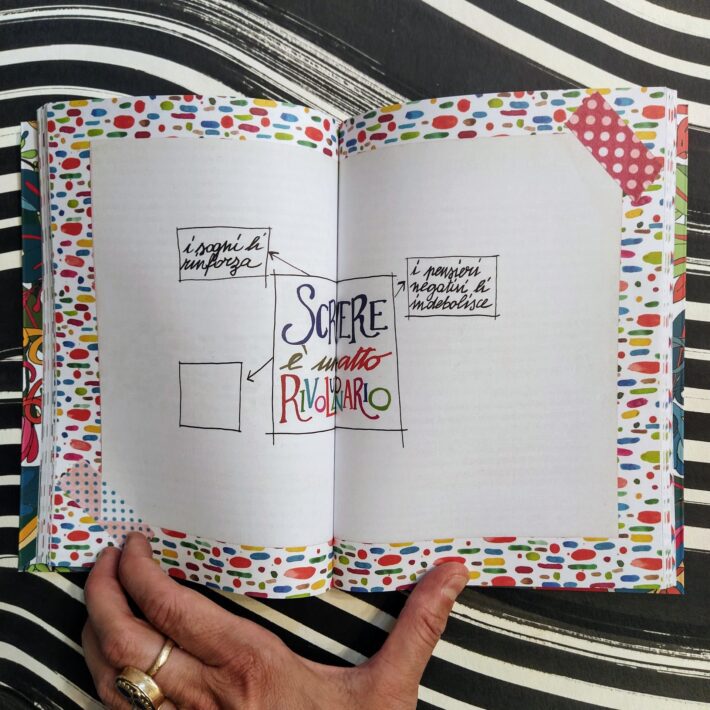 i sogni li
rinforza
i pensieri
negativi li
indebolisce
SCRIVERE
è un atto
RIVOLUZIONARIO